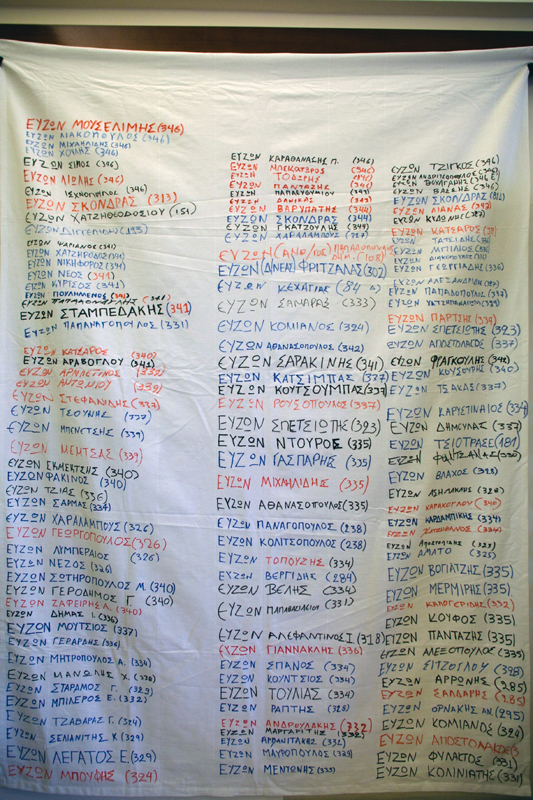 ΕΥΖΩΝ ΜΟΥΣΕΛΙΜΗΣ (346)
ΕΥΖΩΝ ΛΙΑΚΟΠΟΥΛΟΣ (346)
ΕΥΖΩΝ ΜΙΧΑΗΛΙΔΗΣ (346)
ΕΥΖΩΝ ΧΟΥΛΗΣ (346)
ΕΥΖΩΝ ΣΙΜΟΣ (346)
ΕΥΖΩΝ ΛΙΩΛΗΣ (346)
ΕΥΖΩΝ (346)
ΕΥΖΩΝ ΣΚΟΝΔΡΑΣ (313)
ΕΥΖΩΝ ΧΑΤΖΗΘΕΟΔΟΣΙΟΥ (151)
ΕΥΖΩΝ (195)
ΕΥΖΩΝ (341)
ΕΥΖΩΝ ΧΑΤΖΗΡΟΔΟΣ (341)
ΕΥΖΩΝ ΝΙΚΗΦΟΡΟΣ (341)
ΕΥΖΩΝ ΝΕΟΣ (341)
ΕΥΖΩΝ ΚΥΡΙΤΣΟΣ (341)
ΕΥΖΩΝ (341)
ΕΥΖΩΝ (341)
ΕΥΖΩΝ ΣΤΑΜΠΕΔΑΚΗΣ (341)
ΕΥΖΩΝ ΠΑΠΑΝΑΓΟΠΟΥΛΟΣ (331)
ΕΥΖΩΝ ΚΑΤΣΑΡΟΣ (340)
ΕΥΖΩΝ ΑΡΑΒΟΓΛΟΥ (342)
ΕΥΖΩΝ (332)
ΕΥΖΩΝ ΑΝΤΩΝΙΟΥ (339)
ΕΥΖΩΝ ΣΤΕΦΑΝΙΔΗΣ (337)
ΕΥΖΩΝ ΤΣΟΥΝΗΣ (337)
ΕΥΖΩΝ ΜΠΕΝΕΤΣΗΣ (339)
ΕΥΖΩΝ ΜΕΝΤΣΑΣ (339)
ΕΥΖΩΝ ΕΚΜΕΚΤΣΗΣ (340)
ΕΥΖΩΝ ΦΑΚΙΝΟΣ (340)
ΕΥΖΩΝ ΤΖΙΑΣ (336)
ΕΥΖΩΝ ΣΑΡΜΑΣ (334)
ΕΥΖΩΝ ΧΑΡΑΛΑΜΠΟΥΣ (326)
ΕΥΖΩΝ ΓΕΩΡΓΟΠΟΥΛΟΣ (326)
ΕΥΖΩΝ ΛΥΜΠΕΡΑΙΟΣ (326)
ΕΥΖΩΝ ΝΕΖΟΣ (326)
ΕΥΖΩΝ ΣΩΤΗΡΟΠΟΥΛΟΣ Μ. (340)
ΕΥΖΩΝ ΓΕΡΟΔΗΜΟΣ Γ. (340)
ΕΥΖΩΝ ΖΑΡΕΙΡΗΣ Α. (340)
ΕΥΖΩΝ ΔΗΜΑΣ Ι. (336)
ΕΥΖΩΝ ΜΟΥΤΣΙΟΣ (337)
ΕΥΖΩΝ ΓΕΡΑΡΔΗΣ (336)
ΕΥΖΩΝ ΜΗΤΡΟΠΟΥΛΟΣ Α. (334)
ΕΥΖΩΝ ΜΑΝΩΛΗΣ Χ. (328)
ΕΥΖΩΝ ΣΤΑΡΑΜΟΣ Γ. (329)
ΕΥΖΩΝ ΜΠΙΛΕΡΟΣ Ε. (332)
ΕΥΖΩΝ ΤΖΑΒΑΡΑΣ Γ. (324)
ΕΥΖΩΝ ΣΕΛΙΑΝΙΤΗΣ Κ. (329)
ΕΥΖΩΝ ΛΕΓΑΤΟΣ Ε. (329)
ΕΥΖΩΝ ΜΠΟΥΦΗΣ (324)
ΕΥΖΩΝ ΚΑΡΑΘΑΝΑΣΗΣ Π. (346)
ΕΥΖΩΝ ΜΠΕΚΑΤΩΡΟΣ (346)
ΕΥΖΩΝ ΤΟΔΖΡΗΣ (346)
ΕΥΖΩΝ ΠΑΝΤΑΖΗΣ (346)
ΕΥΖΩΝ
ΕΥΖΩΝ ΔΑΝΙΚΑΣ (343)
ΕΥΖΩΝ ΒΑΡΥΠΑΤΗΣ (346)
ΕΥΖΩΝ ΣΚΟΝΔΡΑΣ (344)
ΕΥΖΩΝ ΓΚΑΤΖΟΥΛΗΣ (349)
ΕΥΖΩΝ ΧΑΡΑΛΑΜΠΟΥΣ (327)
ΕΥΖΩΝ (ΑΝΘ/ΓΟΣ) ΠΑΠΑΔΟΠΟΥΛΟΣ ΔΗΜ. (108)
ΕΥΖΩΝ (ΔΝΕΑΣ) ΦΡΙΤΖΑΛΑΣ (302)
ΕΥΖΩΝ ΚΕΧΑΓΙΑΣ (84 α)
ΕΥΖΩΝ ΣΑΝΔΡΑΣ (333)
ΕΥΖΩΝ ΚΟΜΙΑΝΟΣ (324)
ΕΥΖΩΝ ΑΘΑΝΑΣΟΠΟΥΛΟΣ (342)
ΕΥΖΩΝ ΣΑΡΑΚΙΝΗΣ (341)
ΕΥΖΩΝ ΚΑΤΣΙΜΠΑΣ (337)
ΕΥΖΩΝ ΚΟΥΤΣΟΥΜΠΑΣ (337)
ΕΥΖΩΝ ΡΟΥΣΟΠΟΥΛΟΣ (337)
ΕΥΖΩΝ ΣΠΕΤΣΙΟΤΗΣ (323)
ΕΥΖΩΝ ΝΤΟΥΡΟΣ (335)
ΕΥΖΩΝ ΓΑΣΠΑΡΗΣ (335)
ΕΥΖΩΝ ΜΙΧΑΗΛΙΔΗΣ (335)
ΕΥΖΩΝ ΑΘΑΝΑΣΟΠΟΥΛΟΣ (335)
ΕΥΖΩΝ ΠΑΝΑΓΟΠΟΥΛΟΣ (238)
ΕΥΖΩΝ ΚΟΛΙΤΣΟΠΟΥΛΟΣ (238)
ΕΥΖΩΝ ΤΟΠΟΥΖΗΣ (334)
ΕΥΖΩΝ ΒΕΡΓΙΔΗΣ (284)
ΕΥΖΩΝ ΒΕΛΗΣ (334)
ΕΥΖΩΝ ΠΑΠΑΒΑΣΙΛΕΙΟΥ (331)
ΕΥΖΩΝ ΑΛΕΦΑΝΤΙΝΟΣ Ι. (318)
ΕΥΖΩΝ ΓΙΑΝΝΑΚΛΗΣ (336)
ΕΥΖΩΝ ΣΠΑΝΟΣ (334)
ΕΥΖΩΝ ΚΟΥΝΤΣΙΟΣ (334)
ΕΥΖΩΝ ΤΟΥΛΙΑΣ (334)
ΕΥΖΩΝ ΡΑΠΤΗΣ (328)
ΕΥΖΩΝ ΑΝΔΡΟΥΛΑΚΗΣ (332)
ΕΥΖΩΝ ΜΑΡΓΑΡΙΤΗΣ (332)
ΕΥΖΩΝ ΑΡΒΑΝΙΤΑΚΗΣ (332)
ΕΥΖΩΝ ΜΑΥΡΟΠΟΥΛΟΣ (328)
ΕΥΖΩΝ ΜΕΝΤΩΝΗΣ (335)
ΕΥΖΩΝ ΤΖΙΓΚΟΣ (346)
ΕΥΖΩΝ ΑΝΔΡΙΝΟΠΟΥΛΟΣ (346)
ΕΥΖΩΝ ΒΟΥΛΓΑΡΗΣ (346)
ΕΥΖΩΝ (346)
ΕΥΖΩΝ ΣΚΟΝΔΡΑΣ (312)
ΕΥΖΩΝ ΛΙΑΝΑΣ (347)
ΕΥΖΩΝ ΚΥΔΩΝΗΣ (327)
ΕΥΖΩΝ ΚΑΤΣΑΡΟΣ
ΕΥΖΩΝ ΤΑΤΣΙΔΗΣ
ΕΥΖΩΝ ΜΠΙΛΙΟΣ
ΕΥΖΩΝ
ΕΥΖΩΝ ΓΕΩΡΓΙΑΔΗΣ (336)
ΕΥΖΩΝ ΑΛΕΞΑΝΔΡΙΔΗΣ
ΕΥΖΩΝ ΠΑΠΑΔΟΠΟΥΛΟΣ (337)
ΕΥΖΩΝ
ΕΥΖΩΝ ΠΑΡΤΣΗΣ (339)
ΕΥΖΩΝ ΣΠΕΤΣΙΩΤΗΣ (323)
ΕΥΖΩΝ ΑΠΟΣΤΟΛΙΔΗΣ (337)
ΕΥΖΩΝ ΦΡΑΓΚΟΥΛΗΣ (342)
ΕΥΖΩΝ ΚΟΥΣΟΥΡΗΣ (340)
ΕΥΖΩΝ ΤΣΑΚΑΣ (337)
ΕΥΖΩΝ ΚΑΡΥΣΤΙΝΑΙΟΣ (334)
ΕΥΖΩΝ ΔΗΜΟΥΛΑΣ (337)
ΕΥΖΩΝ ΤΣΙΟΤΡΑΣ (181)
ΕΥΖΩΝ ΦΟΥΝΤΖΑΝΑΣ (330)
ΕΥΖΩΝ ΒΛΑΧΟΣ (328)
ΕΥΖΩΝ ΑΣΗΜΑΚΗΣ (328)
ΕΥΖΩΝ ΚΑΡΑΚΟΓΛΟΥ (340)
ΕΥΖΩΝ ΚΑΡΔΑΜΠΙΚΗΣ (334)
ΕΥΖΩΝ (334)
ΕΥΖΩΝ (329)
ΕΥΖΩΝ ΑΜΑΤΟ (325)
ΕΥΖΩΝ ΒΟΓΙΑΤΖΗΣ (335)
ΕΥΖΩΝ ΜΕΡΜΙΡΗΣ (335)
ΕΥΖΩΝ ΚΑΛΟΓΕΡΙΔΗΣ (332)
ΕΥΖΩΝ ΚΟΥΦΟΣ (335)
ΕΥΖΩΝ ΠΑΝΤΑΖΗΣ (335)
ΕΥΖΩΝ ΑΛΕΞΟΠΟΥΛΟΣ (335)
ΕΥΖΩΝ ΣΙΤΖΟΓΛΟΥ (328)
ΕΥΖΩΝ ΑΡΡΩΝΗΣ (285)
ΕΥΖΩΝ ΣΑΛΔΑΡΗΣ (285)
ΕΥΖΩΝ ΟΡΛΗΑΚΗΣ ΑΝ. (295)
ΕΥΖΩΝ ΚΟΜΙΑΝΟΣ (324)
ΕΥΖΩΝ ΑΠΟΣΤΟΛΑΚΟΣ
ΕΥΖΩΝ ΦΥΛΑΚΤΟΣ (331)
ΕΥΖΩΝ ΚΟΛΙΝΙΑΤΗΣ (331)